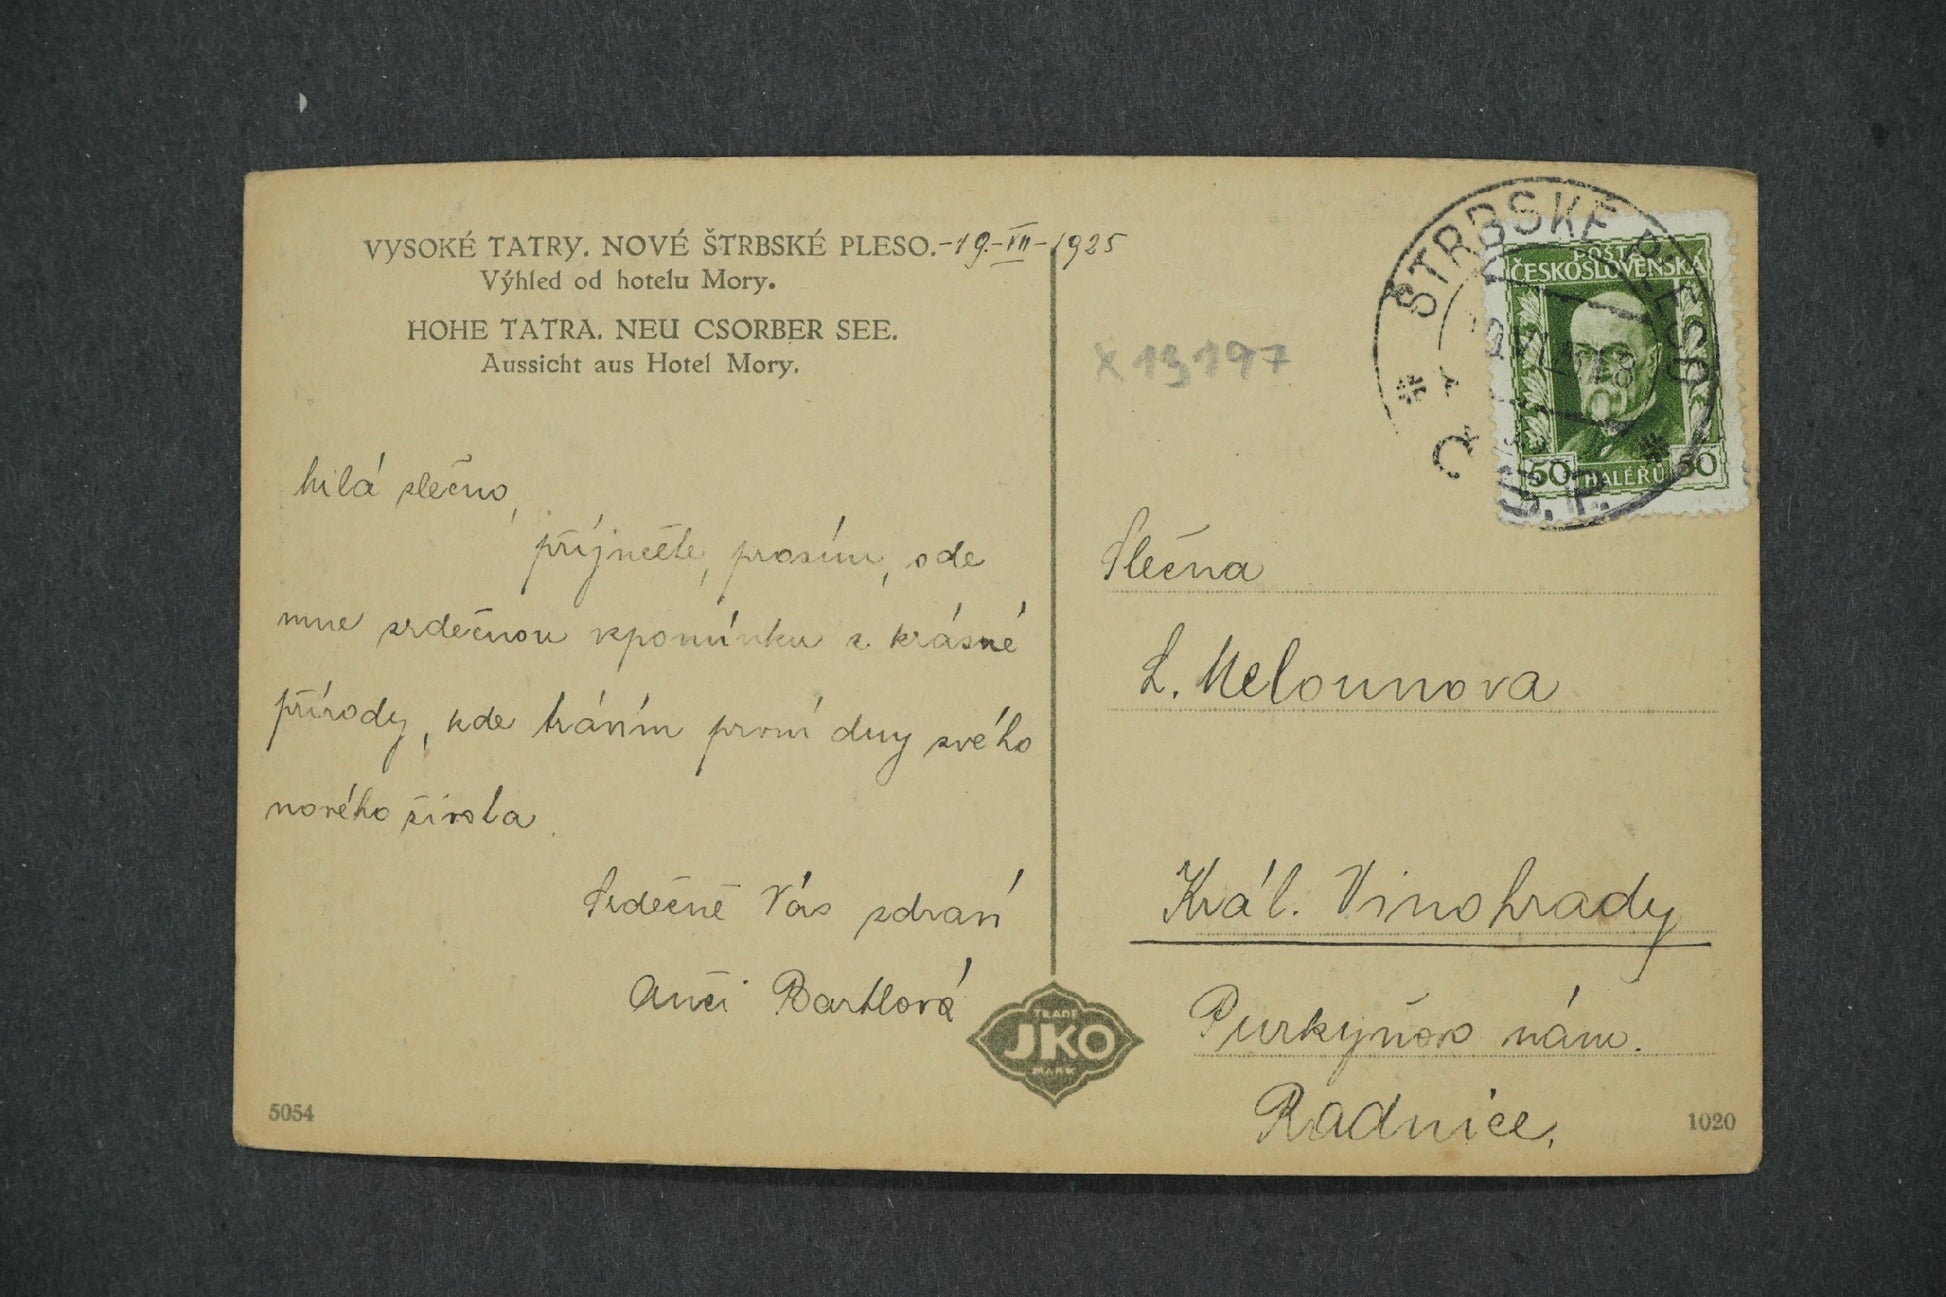 VYSOKÉ TATRY. NOVÉ ŠTRBSKÉ PLESO. -19.-VII-1925
Výhled od hotelu Mory.
HOHE TATRA. NEU CSORBER SEE.
Aussicht aus Hotel Mory.
Milá slečno,
přijměte, prosím, ode
mne srdečnou vzpomínku z krásné
přírody, kde trávím první dny svého
nového života.
Srdečně Vás zdraví
Anči Bartlová
5054
TRADE
JKO
MARK
ŠTRBSKÉ PLESO
Č.S.P.
POŠTA
ČESKOSLOVENSKÁ
50 HALÉŘŮ 50
x 19197
Slečna
L. Melounova
Král. Vinohrady
Purkyňovo nám.
Radnice.
1020